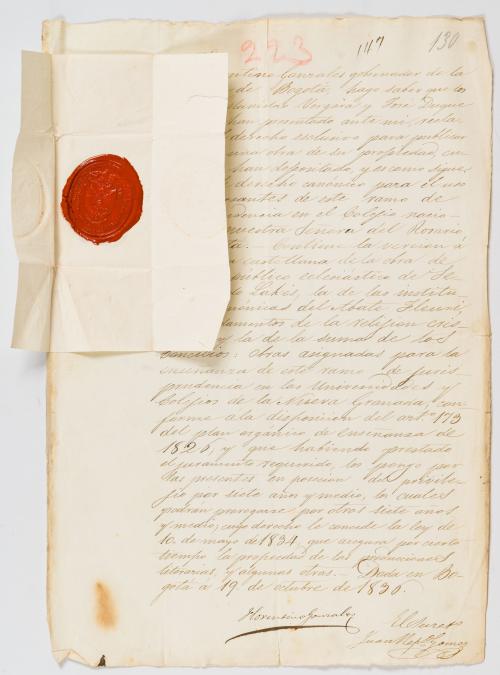 223
117
130
Gonzales gobernador de la
de Bogotá, hago saber que los
Vergara y José Duque
han presentado ante mi, recla
derecho esclusivo para publicar
una obra de su propiedad, cu
han depositado, y es como sigue
derecho canónico para el uso
de este ramo de
en el Colejio nacio-
nuestra Señora del Rosario
Contiene la version á
castellana de la obra de
público eclesiástico de Se
Lakis, la de las institu
del Abate Fleuri,
de la relijion cris
la de la suma de los
Concilios: obras asignadas para la
enseñanza de este ramo de juris
prudencia en las Universidades y
Colejios de la Nueva Granada, con
forme a la disposicion del art.º 173
del plan orgánico de enseñanza de
1826, y que habiendo prestado
el juramento requerido, los pongo por
las presentes en posesion del privile
jio por siete años y medio, los cuales
podrán prorogarse por otros siete años
y medio; cuyo derecho le concede la ley de
10 de mayo de 1834, que asegura por cierto
tiempo la propiedad de las producciones
literarias, y algunas otras. Dada en Bo-
gotá á 19 de octubre de 1836.
Florentino Gonzales
El Secret.º
Juan Nep.º Gomez